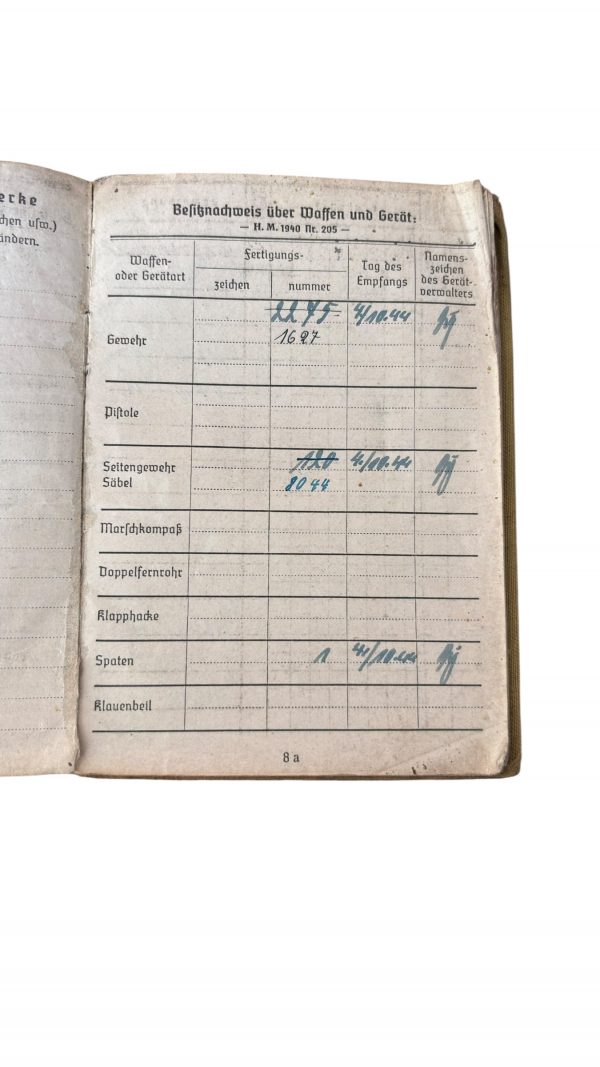 erke
chen usw.)
ändern.
Besitznachweis über Waffen und Gerät:
— H. M. 1940 Nr. 205 —
Waffen-
oder Gerätart
Fertigungs-
zeichen
nummer
Tag des
Empfangs
Namens-
zeichen
des Gerät-
verwalters
2275 4/10.44
Gewehr 1627
Pistole
120 4/10.44
Seitengewehr
Säbel 8044
Marschkompaß
Doppelfernrohr
Klapphacke
Spaten 1 4/10.44
Klauenbeil
8 a